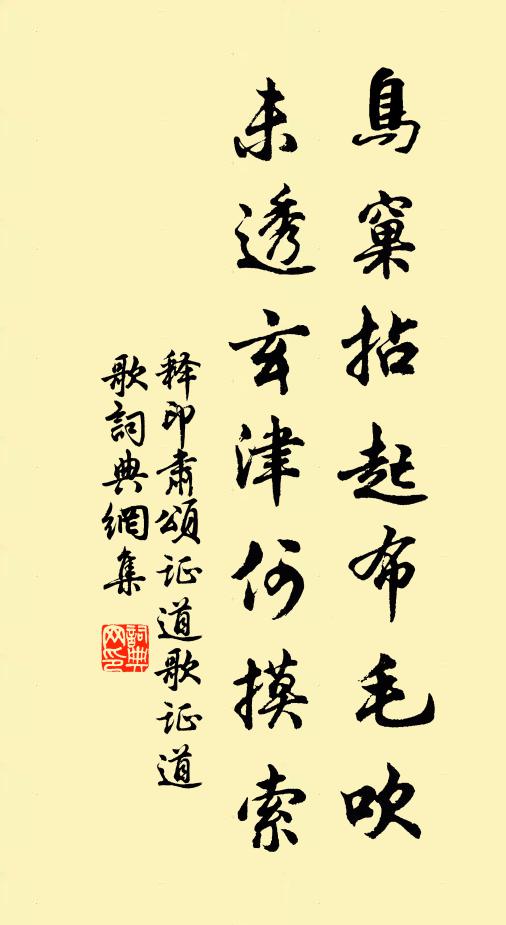 鳥窠拈起布毛吹
未透玄津何摸索
釋印肅頌证道歌证道
歌詞典網集
詞典
网印